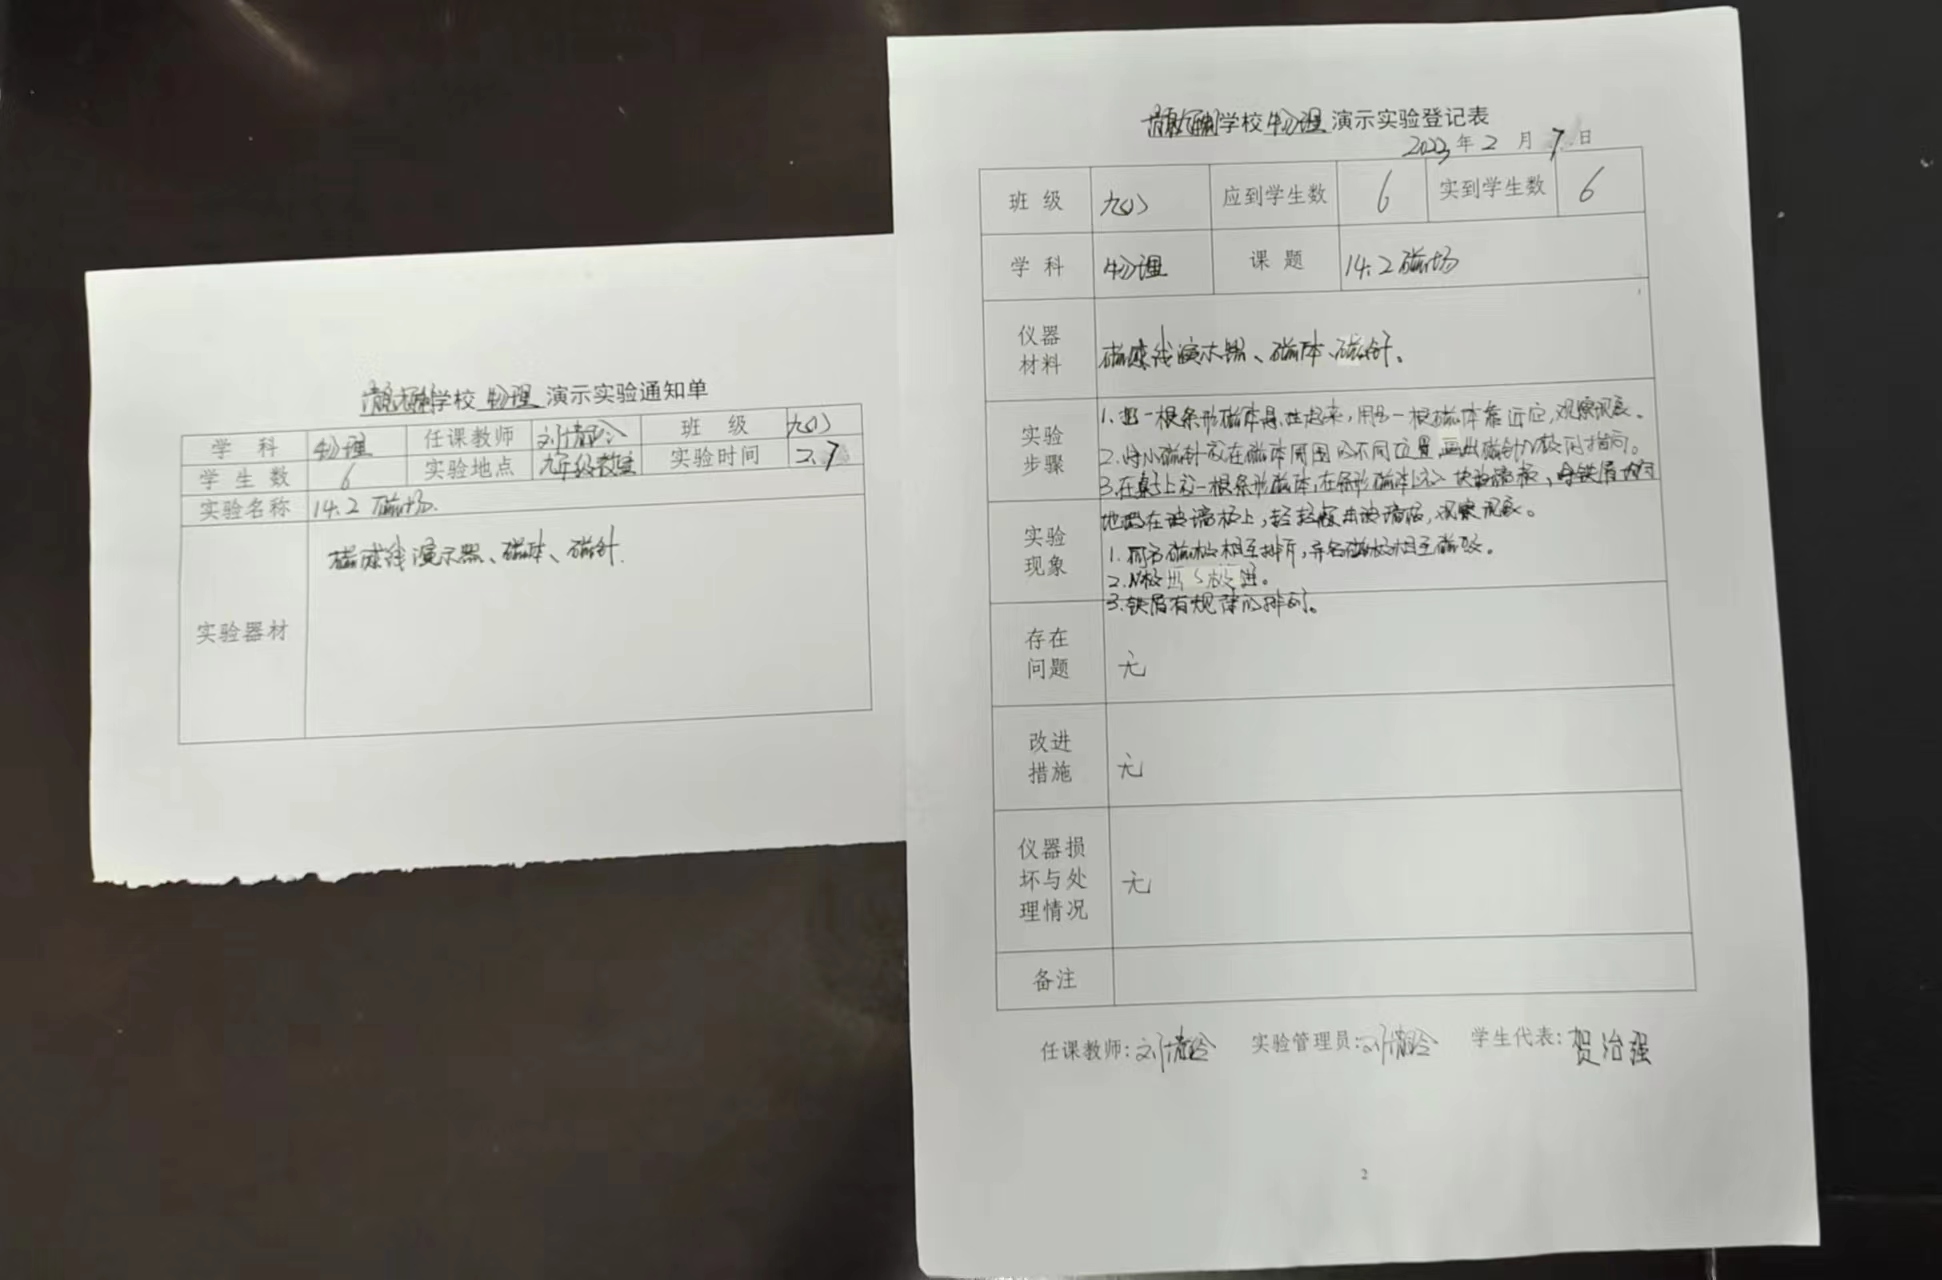 学校 物理 演示实验通知单
学科 物理 任课教师 刘 班级 九(1)
学生数 6 实验地点 九年级教室 实验时间 2.7
实验名称 14.2 磁场.
实验器材 磁感线演示器、磁体、磁针.
学校 物理 演示实验登记表
2023年2月7日
班级 九(1) 应到学生数 6 实到学生数 6
学科 物理 课题 14.2磁场
仪器
材料
磁感线演示器、磁体、磁针。
实验
步骤
1.把一根条形磁体悬挂起来,用另一根磁体靠近它,观察现象。
2.将小磁针放在磁体周围的不同位置,画出磁针N极所指向。
3.在桌上放一根条形磁体,在条形磁体上放一块玻璃板,将铁屑均匀
地洒在玻璃板上,轻轻敲击玻璃板,观察现象。
实验
现象
1.同名磁极相互排斥,异名磁极相互吸引。
2.N极出S极进。
3.铁屑有规律的排列。
存在
问题
无
改进
措施
无
仪器损
坏与处
理情况
无
备注
任课教师:刘 实验管理员:刘 学生代表:贺治强
2